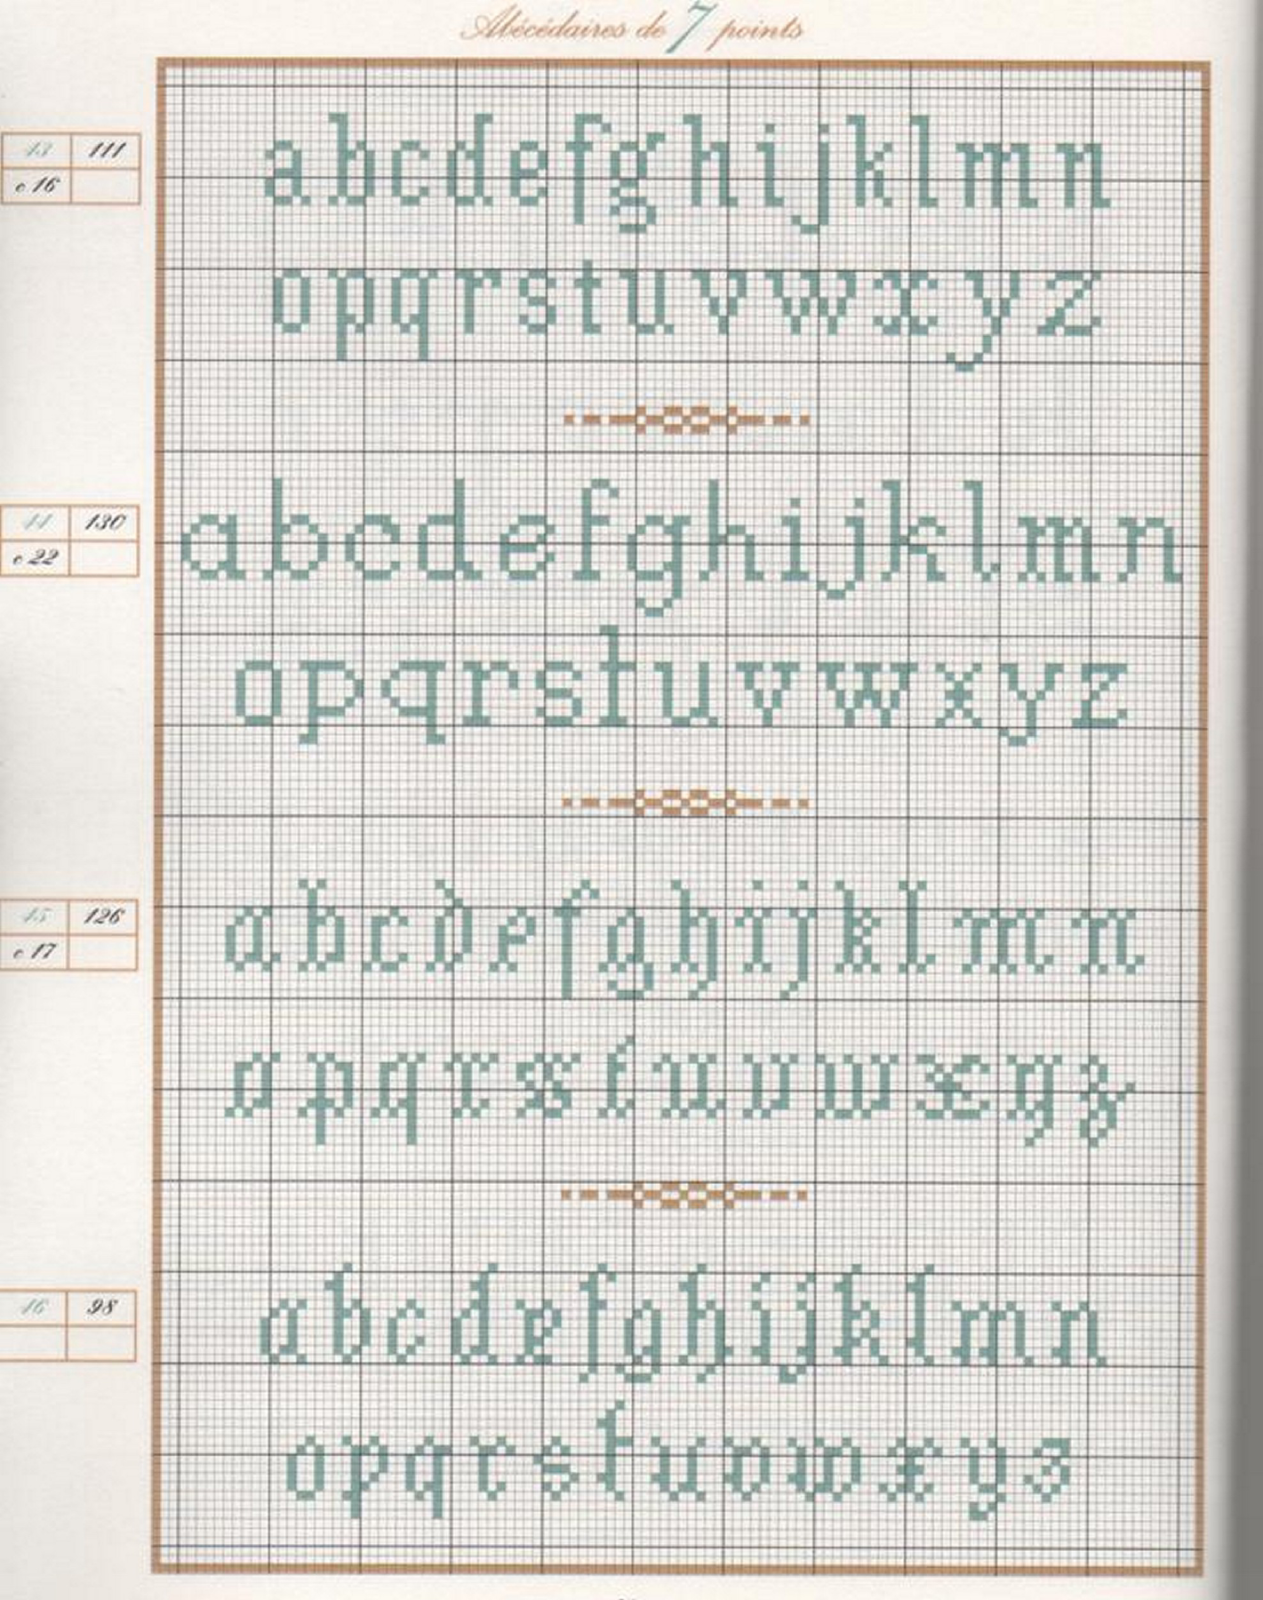 Abécédaires de 7 points
13 111
c 16
abcdefghijklmn
opqrstuvwxyz
14 130
c 22
abcdefghijklmn
opqrstuvwxyz
15 126
c 17
abcdefghijklmn
opqrstuvwxyz
16 98
abcdefghijklmn
opqrstuvwxyz